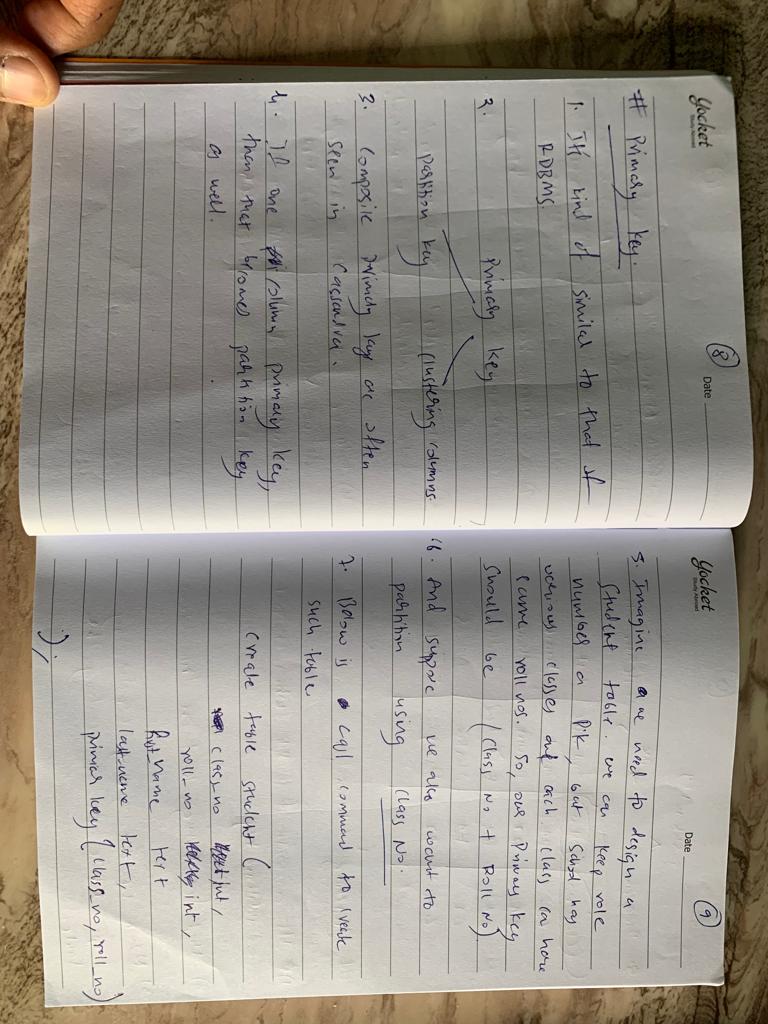 Yocket
Study Abroad
8
Date
# Primary Key.
1. It's kind of similar to that of
RDBMS.
2. Primary Key
partition key clustering columns
3. Composite Primary keys are often
seen in Cassandra.
4. If one column primary key,
then that becomes partition key
as well.
Yocket
Study Abroad
9
Date
5. Imagine we need to design a
Student table. we can keep role
number as P.K, but School has
various classes and each class can have
same roll nos. So, our Primary Key
Should be (Class No + Roll No)
6. And suppose we also want to
partition using Class No.
7. Below is cql command to create
such table
create table student (
class_no int,
roll_no int,
first_name text
last_name text,
primary key (class_no, roll_no)
);